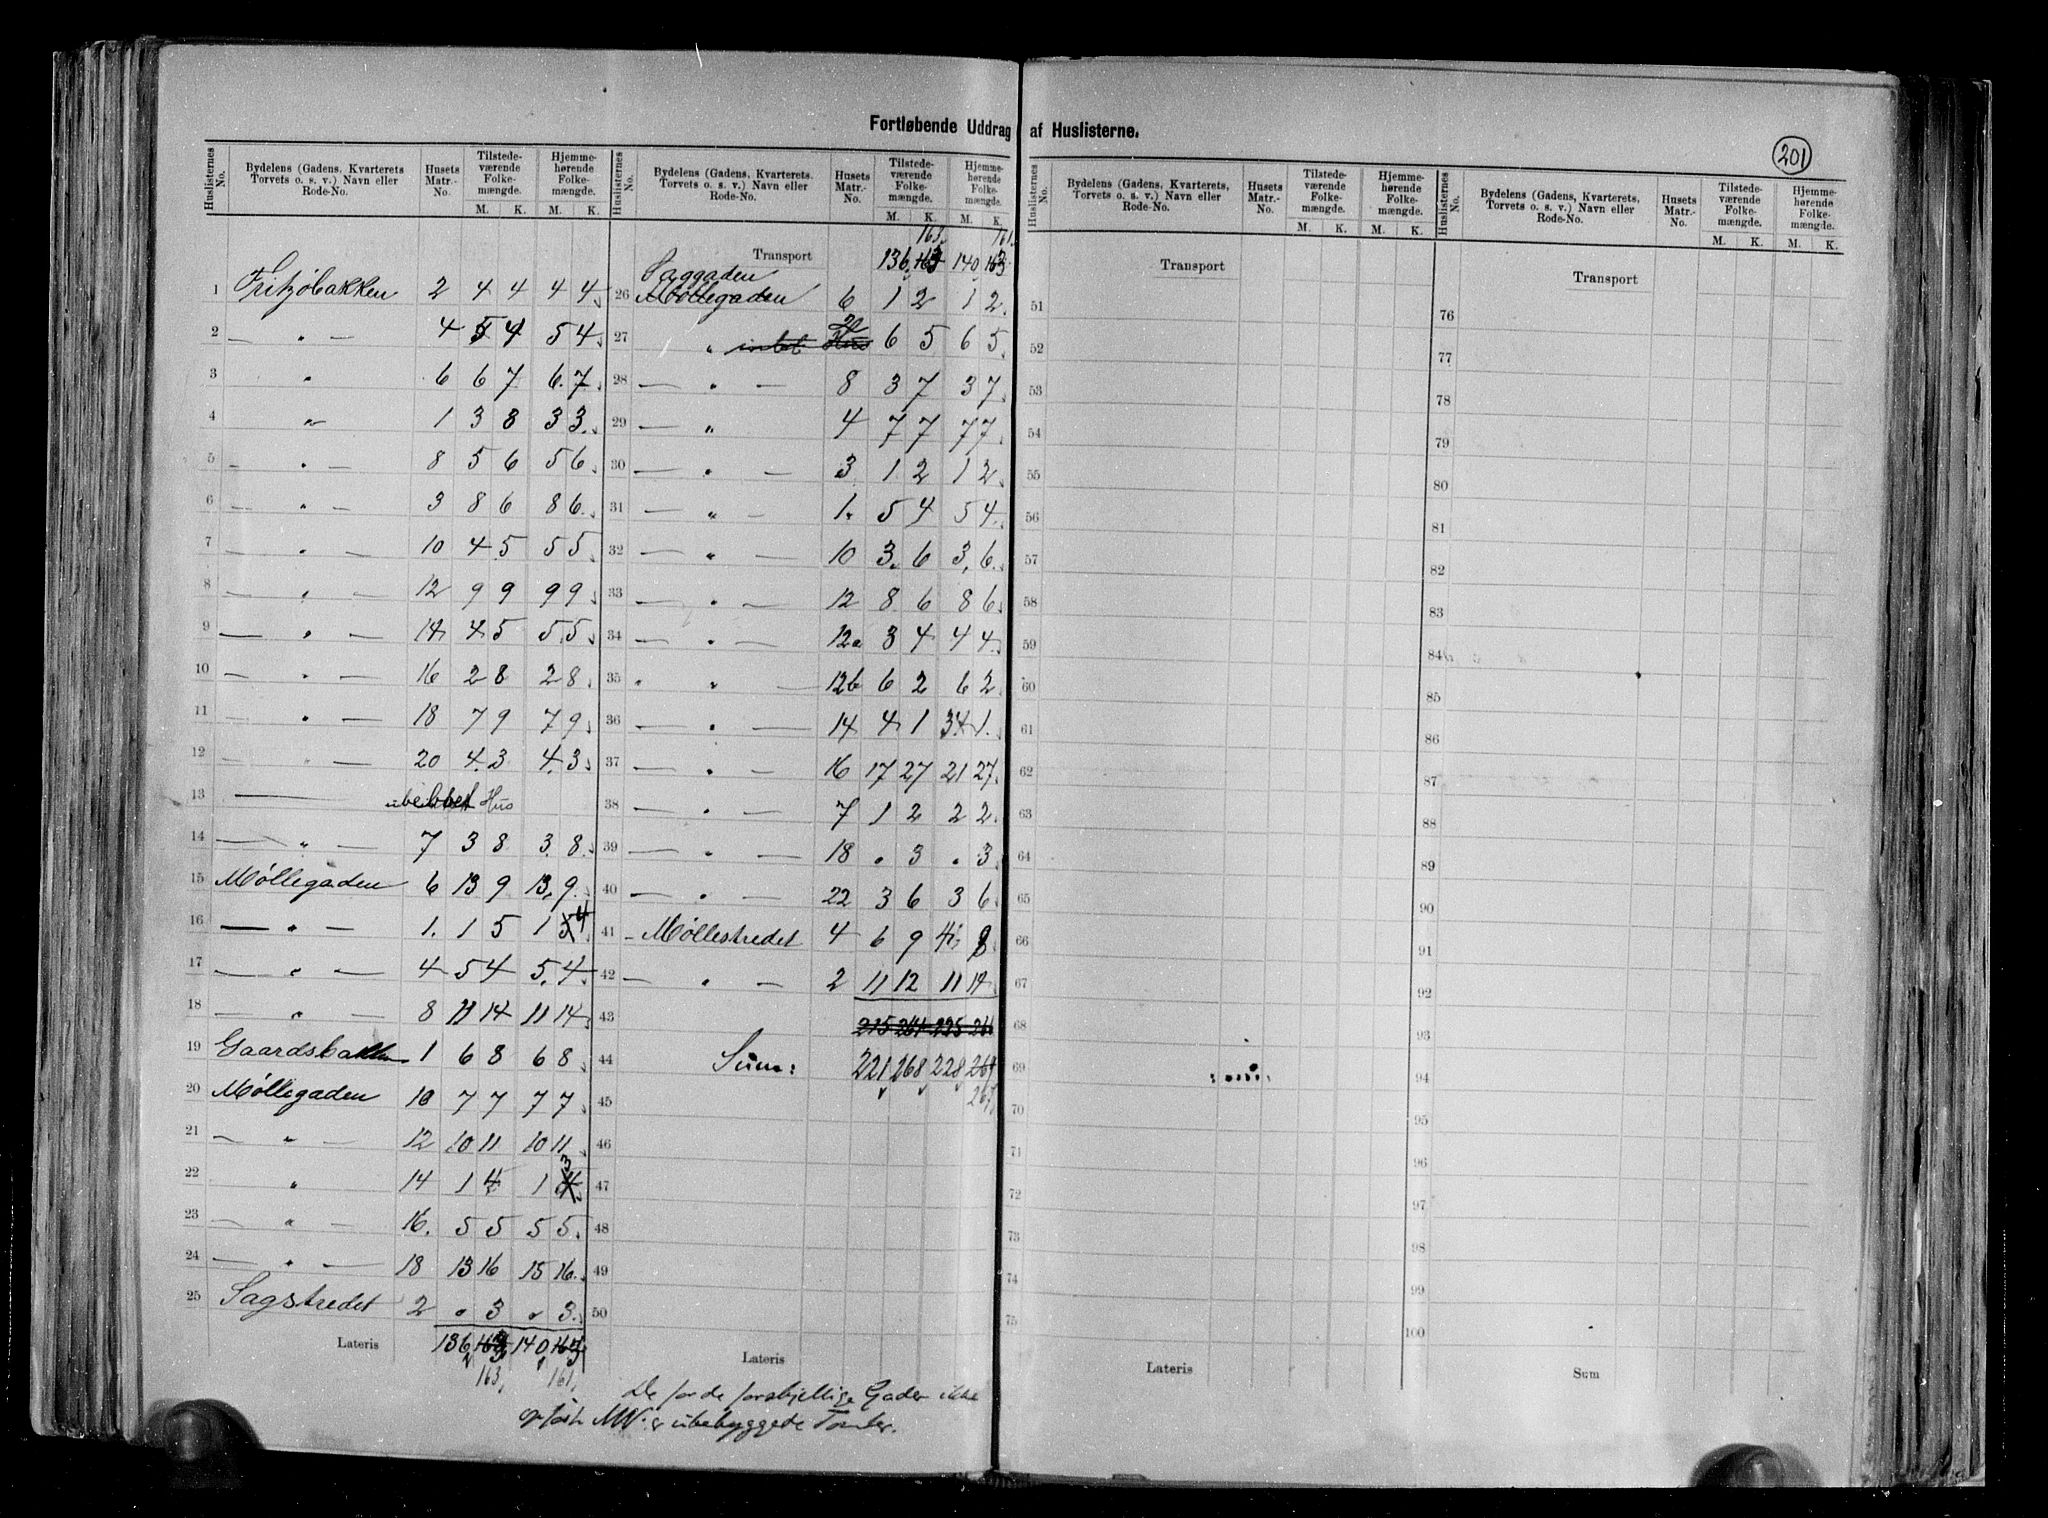 Fortløbende Uddrag af Huslisterne.
201
Huslisternes No. | Bydelens (Gadens, Kvarterets Torvets o. s. v.) Navn eller Rode-No. | Husets Matr.-No. | Tilstedeværende Folkemængde. M. K. | Hjemmehørende Folkemængde. M. K.
1 Fritzøbakken 2 4 4 4 4
2 — " — 4 5 4 5 4
3 " 6 6 7 6 7
4 " 1 3 3 3 3
5 — " — 8 5 6 5 6
6 — " — 3 8 6 8 6
7 — " — 10 4 5 5 5
8 — " — 12 9 9 9 9
9 — " — 14 4 5 5 5
10 — " — 16 2 8 2 8
11 — " — 18 7 9 7 9
12 — " — 20 4 3 4 3
13 — Hus
14 — " — 7 3 8 3 8
15 Møllegaden 6 13 9 13 9
16 — " — 1. 1 5 1 4
17 — " — 4 5 4 5 4
18 — " — 8 11 14 11 14
19 Gaardsbakken 1 6 8 6 8
20 Møllegaden 10 7 7 7 7
21 — " — 12 10 11 10 11
22 " 14 1 4 1 3
23 — " — 16. 5 5 5 5
24 — " — 18 13 16 15 16
25 Sagstredet 2 " 3 " 3
Lateris 136 163 140 163
163 161
Huslisternes No. | Bydelens (Gadens, Kvarterets Torvets o. s. v.) Navn eller Rode-No. | Husets Matr.-No. | Tilstedeværende Folkemængde. M. K. | Hjemmehørende Folkemængde. M. K.
163 161
Transport 136 163 140 163
Saggaden
26 Møllegaden 6 1 2 1 2
27 " intet Hus 20 6 5 6 5
28 — " — 8 3 7 3 7
29 — " 4 7 7 7 7
30 — " — 3 1 2 1 2
31 — " — 1. 5 4 5 4
32 — " — 10 3 6 3 6
33 — " — 12 8 6 8 6
34 — " — 12a 3 4 4 4
35 " " — 12b 6 2 6 2
36 — " — 14 4 1 4 1
37 — " — 16 17 27 21 27
38 — " — 7 1 2 2 2
39 — " — 18 " 3 " 3
40 — " — 22 3 6 3 6
41 Møllestredet 4 6 9 4 8
42 — " — 2 11 12 11 14
43 215 264 225 261
44 Sum: 221 268 228 269
45
46
47
48
49
50
Lateris
De for de forskjellige Gader ikke
opførte MN. er ubebyggede Tomter.
Huslisternes No. | Bydelens (Gadens, Kvarterets, Torvets o. s. v.) Navn eller Rode-No. | Husets Matr.-No. | Tilstedeværende Folkemængde. M. K. | Hjemmehørende Folkemængde. M. K.
Transport
51
52
53
54
55
56
57
58
59
60
61
62
63
64
65
66
67
68
69
70
71
72
73
74
75
Lateris
Huslisternes No. | Bydelens (Gadens, Kvarterets, Torvets o. s. v.) Navn eller Rode-No. | Husets Matr.-No. | Tilstedeværende Folkemængde. M. K. | Hjemmehørende Folkemængde. M. K.
Transport
76
77
78
79
80
81
82
83
84
85
86
87
88
89
90
91
92
93
94
95
96
97
98
99
100
Sum